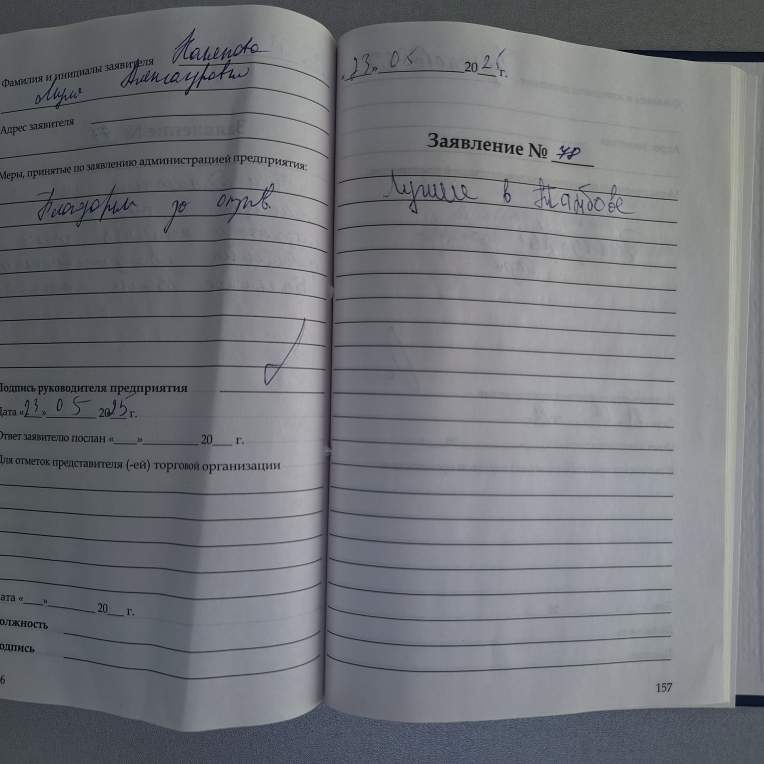 Фамилия и инициалы заявителя
Адрес заявителя
Меры, принятые по заявлению администрацией предприятия:
за отзыв.
Подпись руководителя предприятия
Дата «23» 05 2025 г.
Ответ заявителю послан «___»________ 20___ г.
Для отметок представителя (-ей) торговой организации
ата «___»________ 20___ г.
олжность
одпись
6
«23» 05 2025 г.
Заявление № 78
Лучшие в Тамбове
157